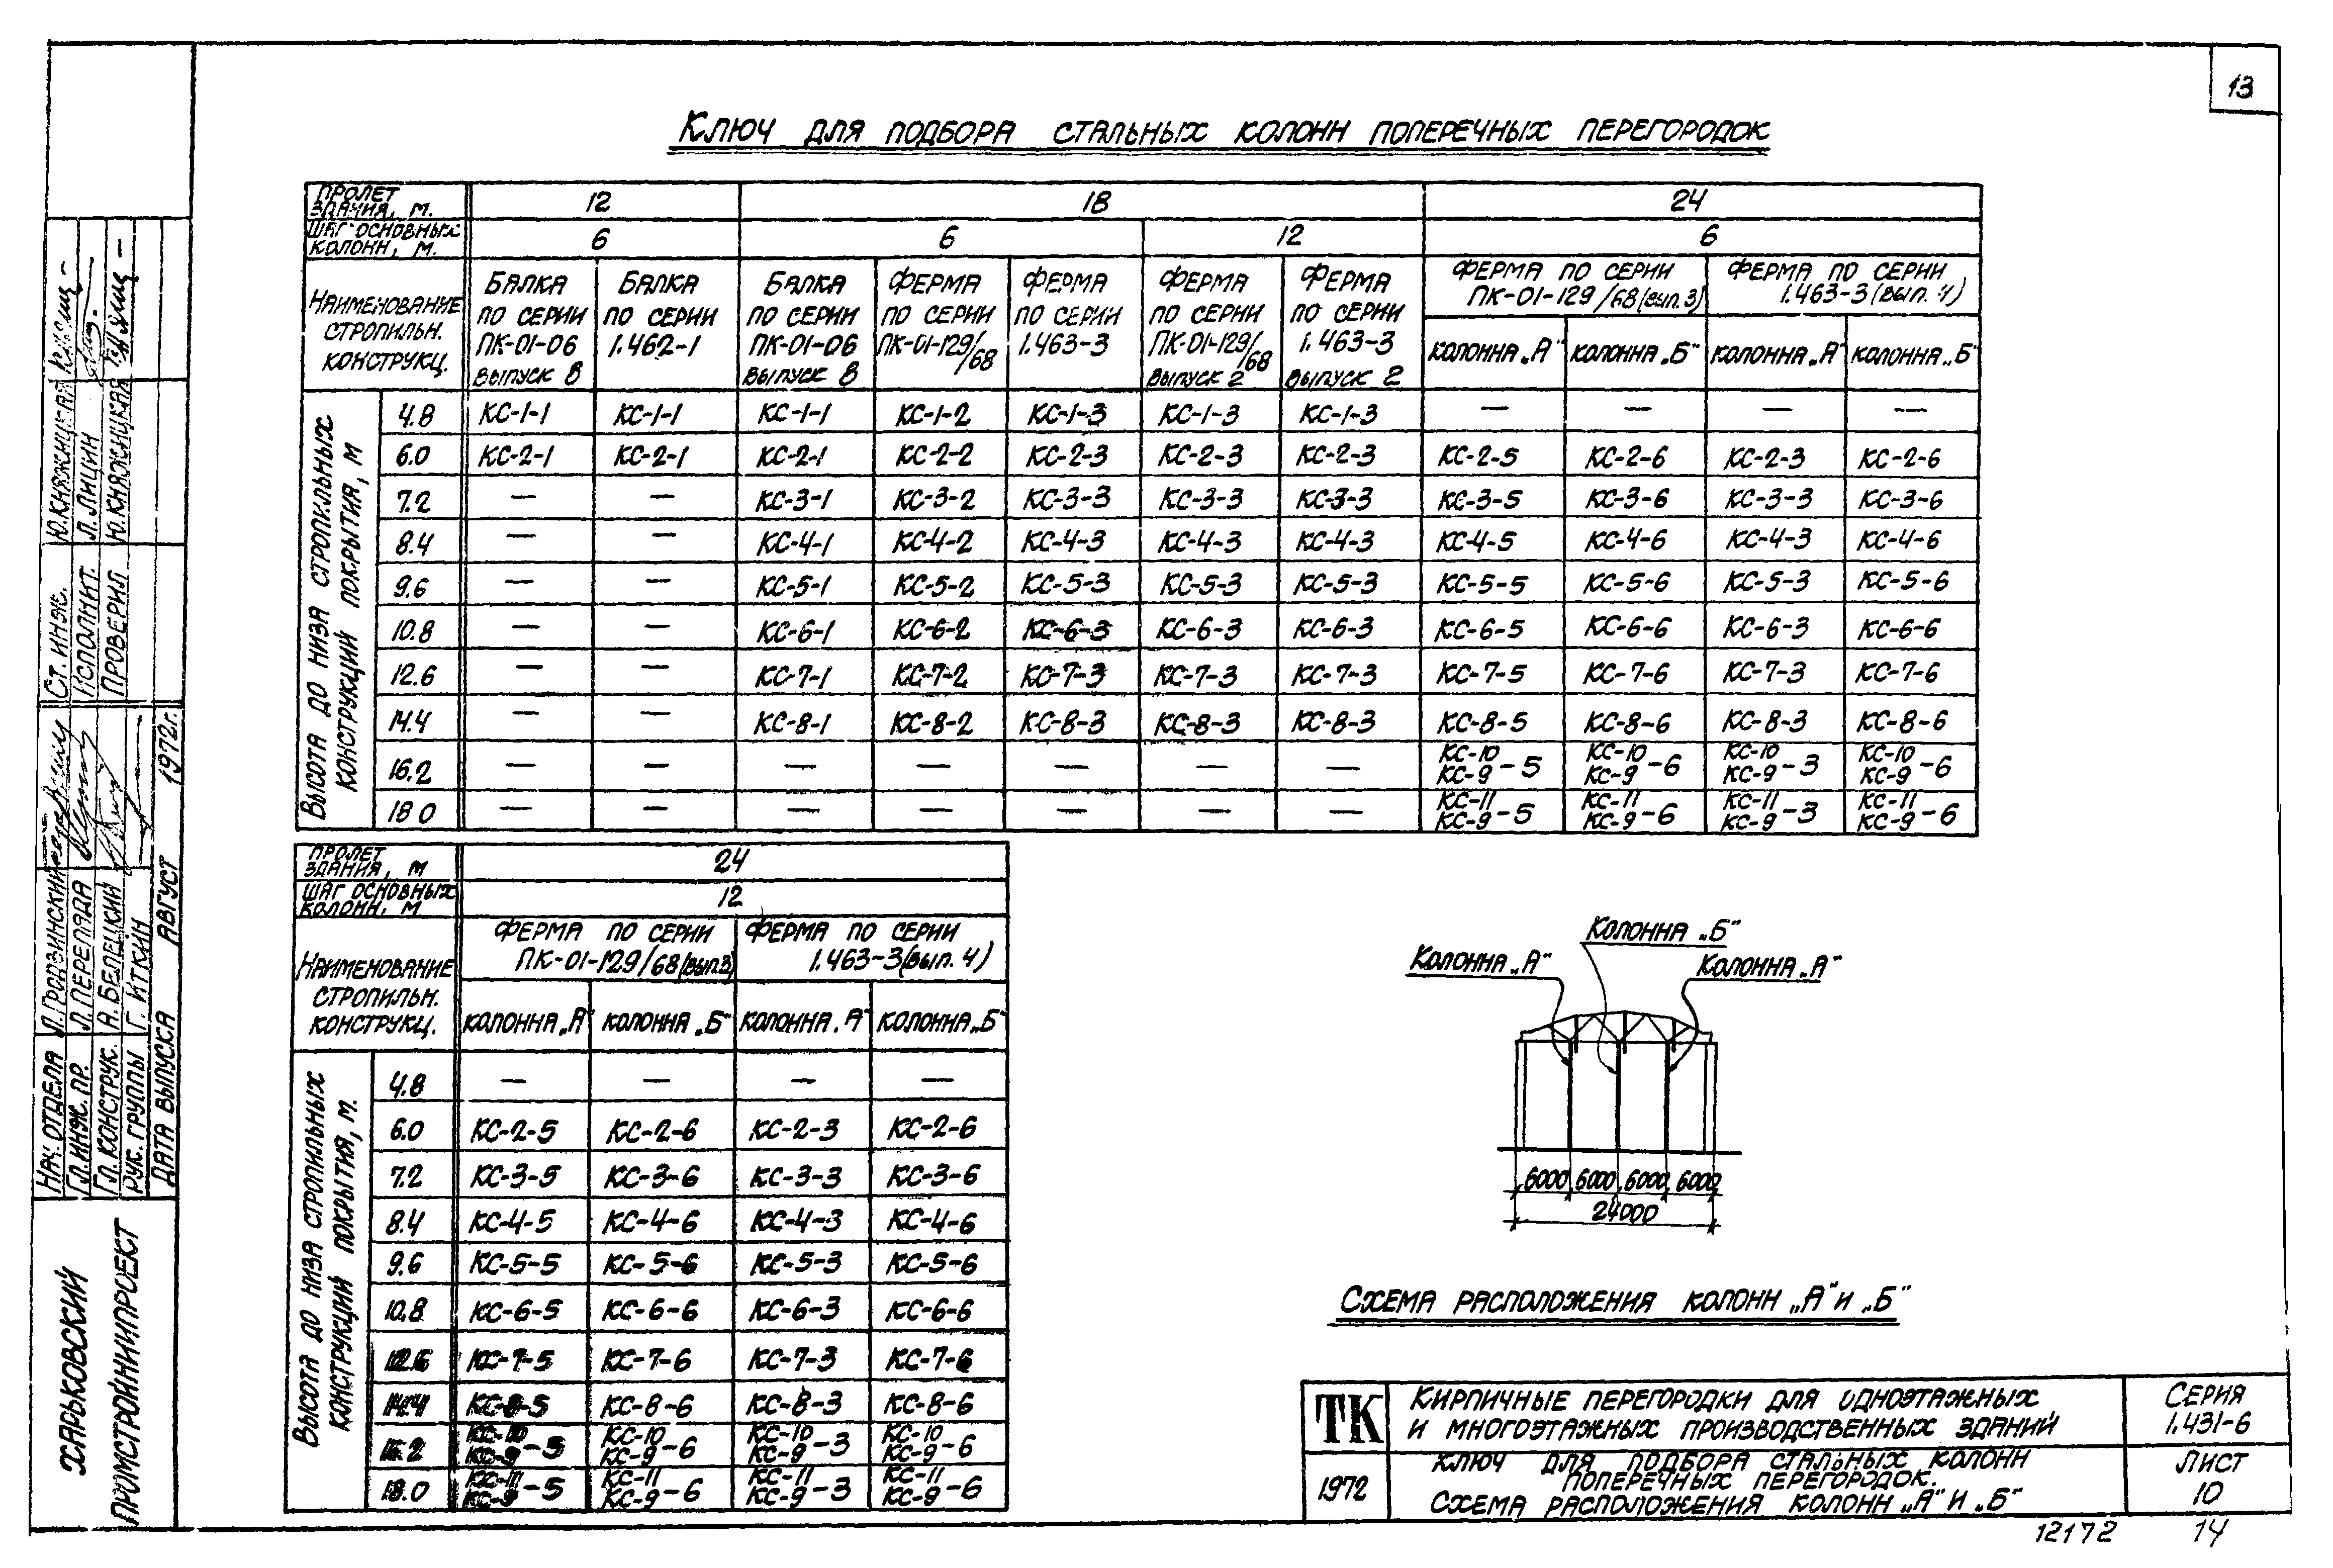 13
Ключ для подбора стальных колонн поперечных перегородок
Пролет здания, м. 12 18 24
Шаг основных колонн, м. 6 6 12 6
Наименование стропильн. конструкц.
Балка по серии ПК-01-06 выпуск 8
Балка по серии 1.462-1
Балка по серии ПК-01-06 выпуск 8
Ферма по серии ПК-01-129/68
Ферма по серии 1.463-3
Ферма по серии ПК-01-129/68 выпуск 2
Ферма по серии 1.463-3 выпуск 2
Ферма по серии ПК-01-129/68 (вып. 3)
Ферма по серии 1.463-3 (вып. 4)
колонна „А" колонна „Б" колонна „А" колонна „Б"
Высота до низа стропильных конструкций покрытия, м
4.8 КС-1-1 КС-1-1 КС-1-1 КС-1-2 КС-1-3 КС-1-3 КС-1-3 — — — —
6.0 КС-2-1 КС-2-1 КС-2-1 КС-2-2 КС-2-3 КС-2-3 КС-2-3 КС-2-5 КС-2-6 КС-2-3 КС-2-6
7.2 — — КС-3-1 КС-3-2 КС-3-3 КС-3-3 КС-3-3 КС-3-5 КС-3-6 КС-3-3 КС-3-6
8.4 — — КС-4-1 КС-4-2 КС-4-3 КС-4-3 КС-4-3 КС-4-5 КС-4-6 КС-4-3 КС-4-6
9.6 — — КС-5-1 КС-5-2 КС-5-3 КС-5-3 КС-5-3 КС-5-5 КС-5-6 КС-5-3 КС-5-6
10.8 — — КС-6-1 КС-6-2 КС-6-3 КС-6-3 КС-6-3 КС-6-5 КС-6-6 КС-6-3 КС-6-6
12.6 — — КС-7-1 КС-7-2 КС-7-3 КС-7-3 КС-7-3 КС-7-5 КС-7-6 КС-7-3 КС-7-6
14.4 — — КС-8-1 КС-8-2 КС-8-3 КС-8-3 КС-8-3 КС-8-5 КС-8-6 КС-8-3 КС-8-6
16.2 — — — — — — — КС-10 КС-9 -5 КС-10 КС-9 -6 КС-10 КС-9 -3 КС-10 КС-9 -6
18.0 — — — — — — — КС-11 КС-9 -5 КС-11 КС-9 -6 КС-11 КС-9 -3 КС-11 КС-9 -6
Пролет здания, м 24
Шаг основных колонн, м 12
Наименование стропильн. конструкц.
Ферма по серии ПК-01-129/68 (вып. 3)
Ферма по серии 1.463-3 (вып. 4)
колонна „А" колонна „Б" колонна „А" колонна „Б"
Высота до низа стропильных конструкций покрытия, м.
4.8 — — — —
6.0 КС-2-5 КС-2-6 КС-2-3 КС-2-6
7.2 КС-3-5 КС-3-6 КС-3-3 КС-3-6
8.4 КС-4-5 КС-4-6 КС-4-3 КС-4-6
9.6 КС-5-5 КС-5-6 КС-5-3 КС-5-6
10.8 КС-6-5 КС-6-6 КС-6-3 КС-6-6
12.6 КС-7-5 КС-7-6 КС-7-3 КС-7-6
14.4 КС-8-5 КС-8-6 КС-8-3 КС-8-6
16.2 КС-10 КС-9 -5 КС-10 КС-9 -6 КС-10 КС-9 -3 КС-10 КС-9 -6
18.0 КС-11 КС-9 -5 КС-11 КС-9 -6 КС-11 КС-9 -3 КС-11 КС-9 -6
Колонна „Б"
Колонна „А" Колонна „А"
6000 6000 6000 6000
24000
Схема расположения колонн „А" и „Б"
ТК
1972
Кирпичные перегородки для одноэтажных
и многоэтажных производственных зданий
Серия
1.431-6
Ключ для подбора стальных колонн
поперечных перегородок.
Схема расположения колонн „А" и „Б"
Лист
10
12172 14
Харьковский
Промстройниипроект
Нач. отдела Л. Гродзинский
Гл. инж. пр. Л. Переляда
Гл. конструк. А. Белецкий
Рук. группы Г. Иткин
Дата выпуска август 1972г.
Ст. инж. Ю. Княжицкая
Исполнит. Л. Лицин
Проверил Ю. Княжицкая